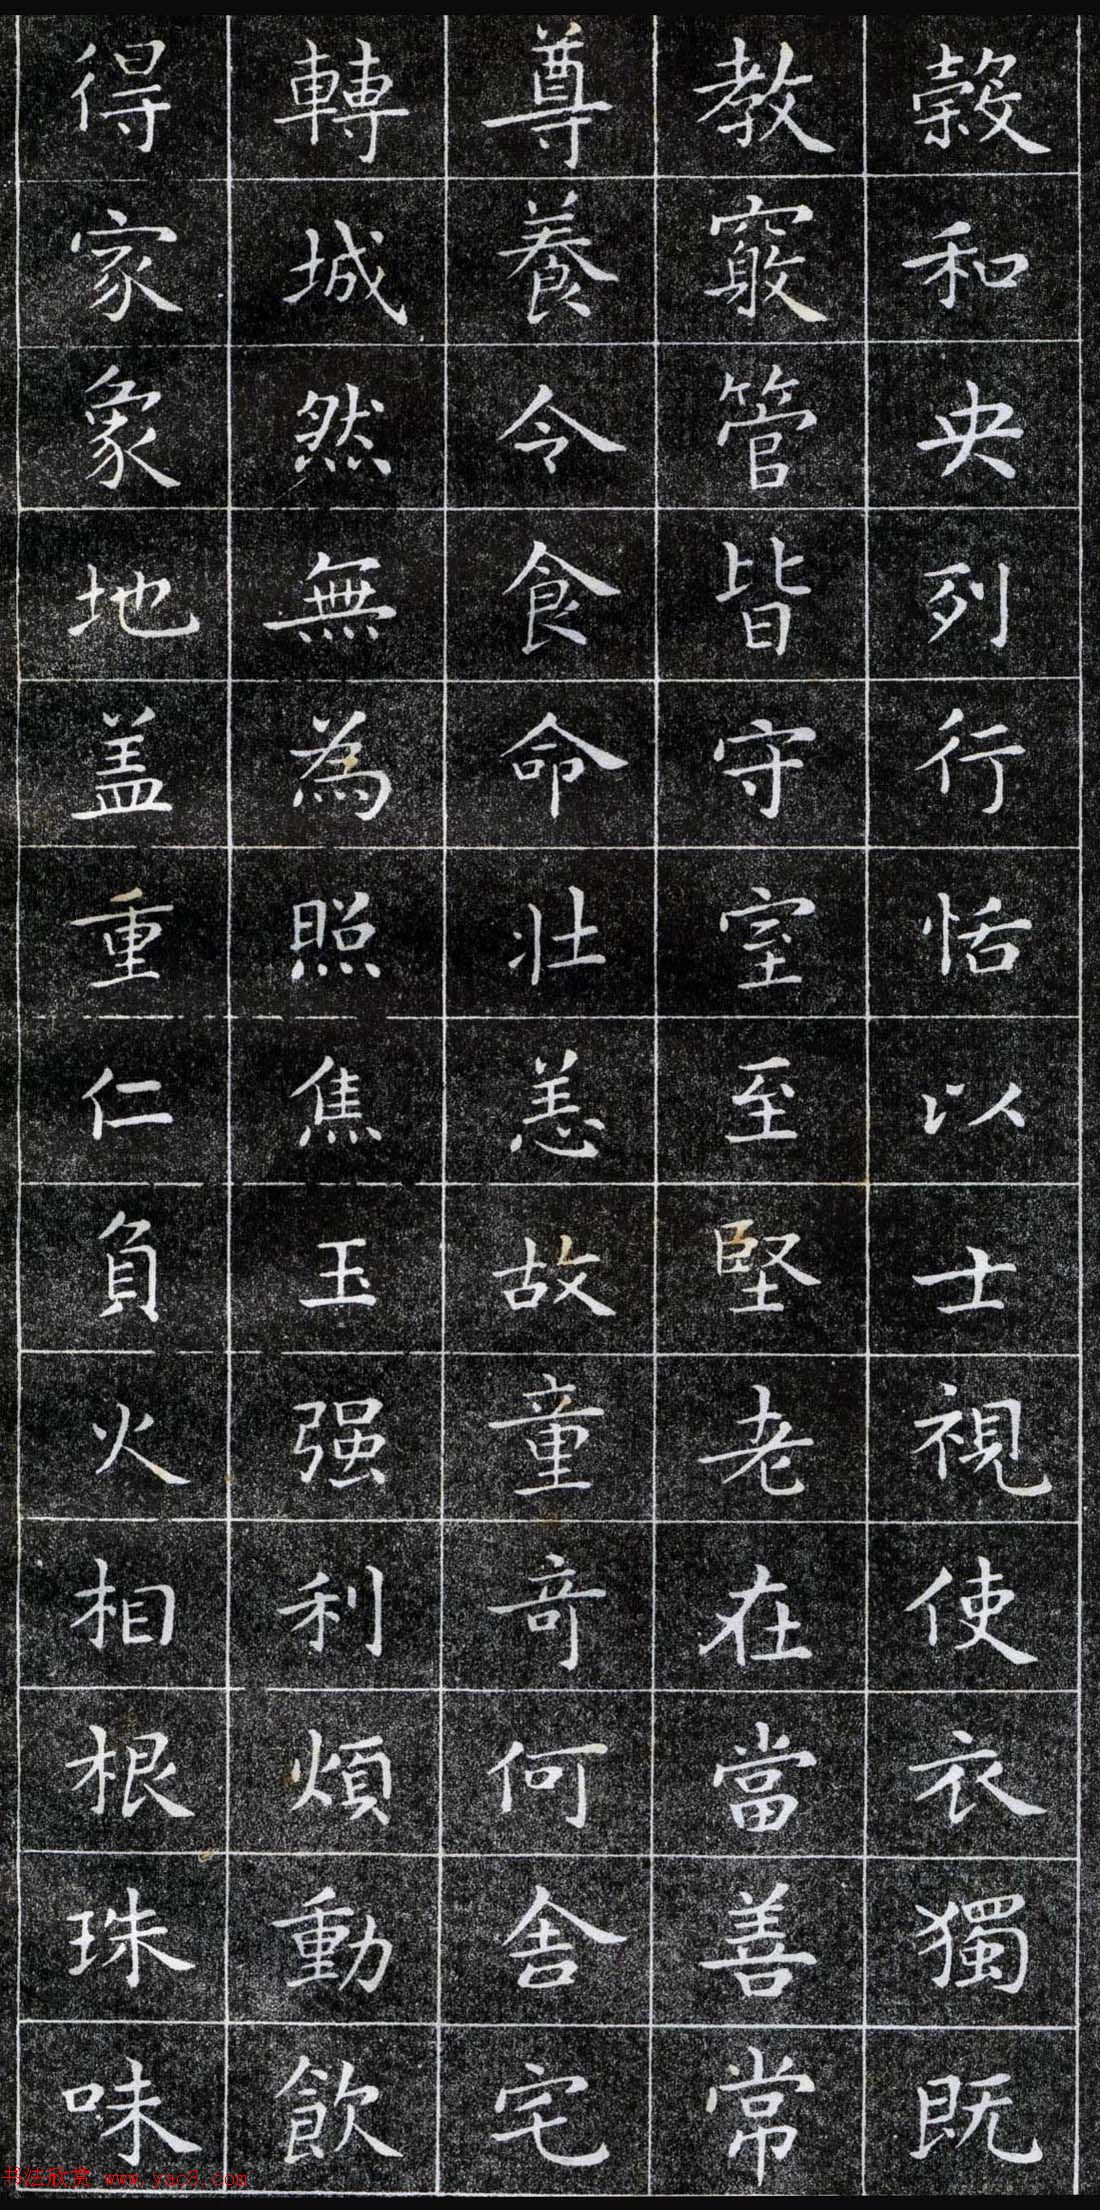 穀和央列行恬以士視使衣獨既
教窺管皆守室至堅老在當善常
尊養令食命壯恙故童奇何舍宅
轉城然無為照焦玉强利煩動飲
得家象地盖重仁負火相根珠味
书法欣赏 www.yac8.com